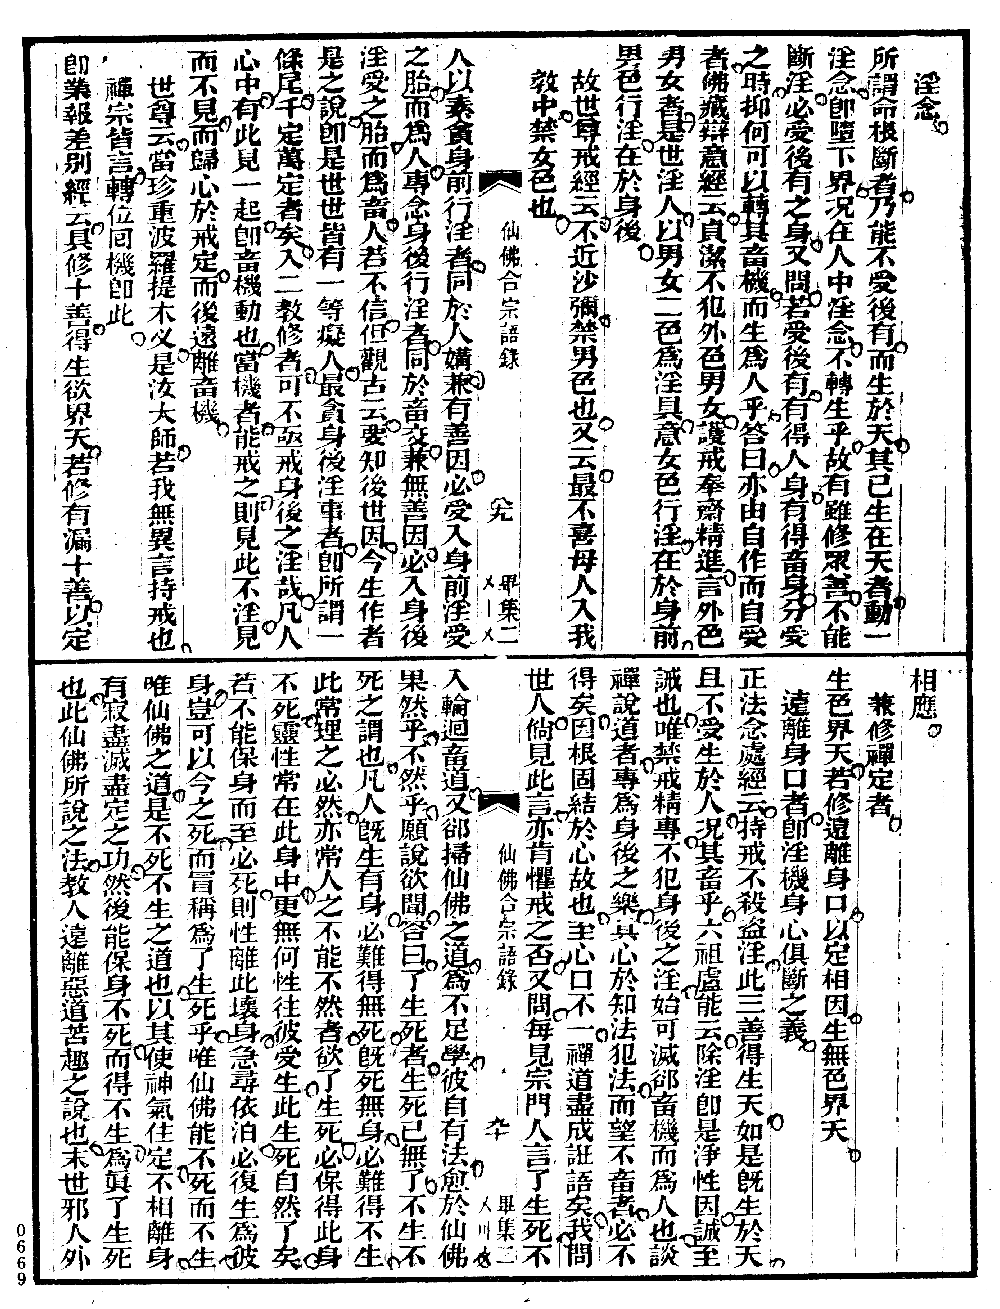 淫念
所謂命根斷者乃能不受後有而生於天其已生在天者動一
淫念卽墮下界况在人中淫念不轉生乎故有雖修眾善不能
斷淫必受後有之身又問若受後有有得人身有得畜身分受
之時抑何可以轉其畜機而生爲人乎答曰亦由自作而自受
者佛藏辯意經云貞潔不犯外色男女護戒奉齋精進言外色
男女者是世淫人以男女二色爲淫具意女色行淫在於身前
男色行淫在於身後
故世尊戒經云不近沙彌禁男色也又云最不喜母人入我
敎中禁女色也
仙佛合宗語錄
卆九
畢集二
〤一〤
人以素貪身前行淫者同於人媾兼有善因必受入身前淫受
之胎而爲人專念身後行淫者同於畜交兼無善因必入身後
淫受之胎而爲畜人若不信但觀古云要知後世因今生作者
是之說卽是世世皆有一等癡人最貪身後淫事者卽所謂一
條尾千定萬定者矣入二教修者可不亟戒身後之淫哉凡人
心中有此見一起卽畜機動也當機者能戒之則見此不淫見
而不見而歸心於戒定而後遠離畜機
世尊云當珍重波羅提木乂是汝大師若我無異言持戒也
禪宗皆言轉位回機卽此
卽業報差別經云具修十善得生欲界天若修有漏十善以定
相應
兼修禪定者
生色界天若修遠離身口以定相因生無色界天
遠離身口者卽淫機身心俱斷之義
正法念處經云持戒不殺盜淫此三善得生天如是旣生於天
且不受生於人况其畜乎六祖盧能云除淫卽是淨性因誠至
誡也唯禁戒精專不犯身後之淫始可滅郤畜機而爲人也談
禪說道者專爲身後之樂其心於知法犯法而望不畜者必不
得矣因根固結於心故也至心口不一禪道盡成誑語矣我問
世人倘見此言亦肯懼戒之否又問每見宗門人言了生死不
仙佛合宗語錄
卆十
畢集二
入輪迴畜道又郤掃仙佛之道爲不足學彼自有法愈於仙佛
果然乎不然乎願說欲聞答曰了生死者生死已無了不生不
死之謂也凡人旣生有身必難得無死旣死無身必難得不生
此常理之必然亦常人之不能不然者欲了生死必保得此身
不死靈性常在此身中更無何性往彼受生此生死自然了矣
若不能保身而至必死則性離此壞身急尋依泊必復生爲彼
身豈可以今之死而冒稱爲了生死乎唯仙佛能不死而不生
唯仙佛之道是不死不生之道也以其使神氣住定不相離身
有寂盡滅盡定之功然後能保身不死而得不生爲眞了生死
也此仙佛所說之法教人遠離惡道苦趣之說也末世邪人外
0669